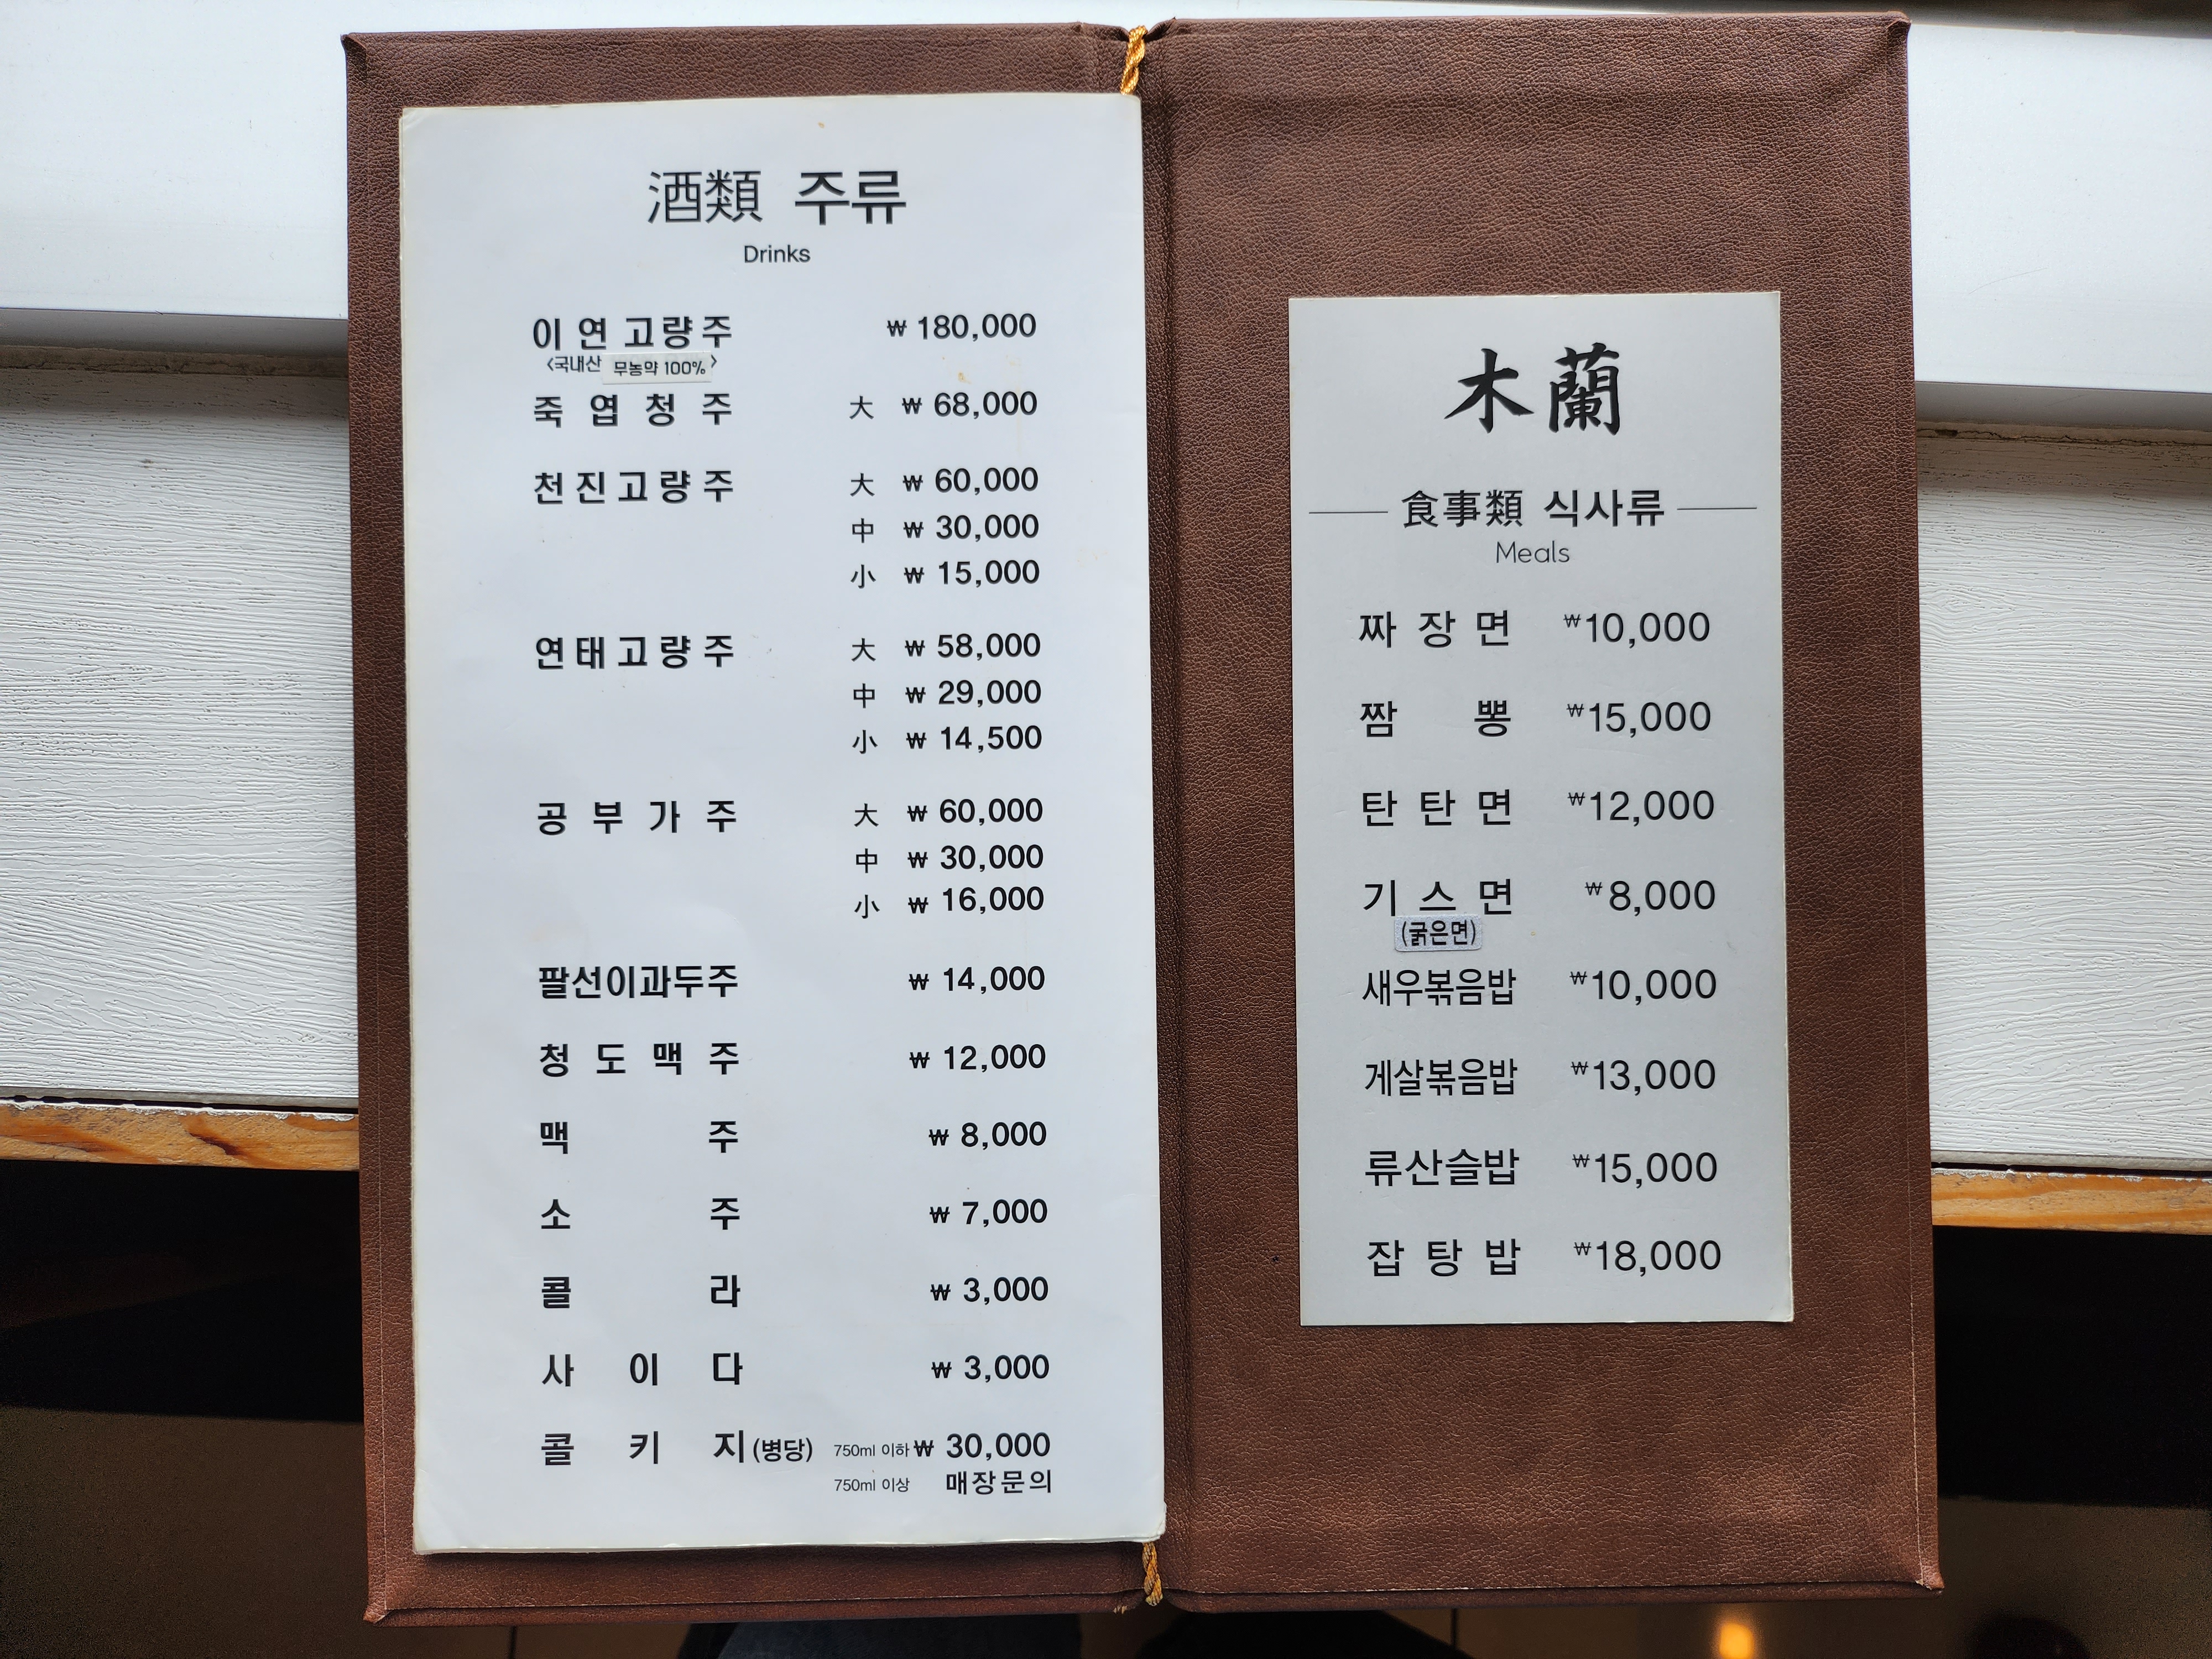 酒類 주류
Drinks
이연고량주 ₩ 180,000
<국내산 무농약 100%>
죽엽청주 大 ₩ 68,000
천진고량주 大 ₩ 60,000
中 ₩ 30,000
小 ₩ 15,000
연태고량주 大 ₩ 58,000
中 ₩ 29,000
小 ₩ 14,500
공부가주 大 ₩ 60,000
中 ₩ 30,000
小 ₩ 16,000
팔선이과두주 ₩ 14,000
청도맥주 ₩ 12,000
맥주 ₩ 8,000
소주 ₩ 7,000
콜라 ₩ 3,000
사이다 ₩ 3,000
콜키지(병당) 750ml 이하 ₩ 30,000
750ml 이상 매장문의
木蘭
食事類 식사류
Meals
짜장면 ₩10,000
짬뽕 ₩15,000
탄탄면 ₩12,000
기스면 ₩8,000
(굵은면)
새우볶음밥 ₩10,000
게살볶음밥 ₩13,000
류산슬밥 ₩15,000
잡탕밥 ₩18,000